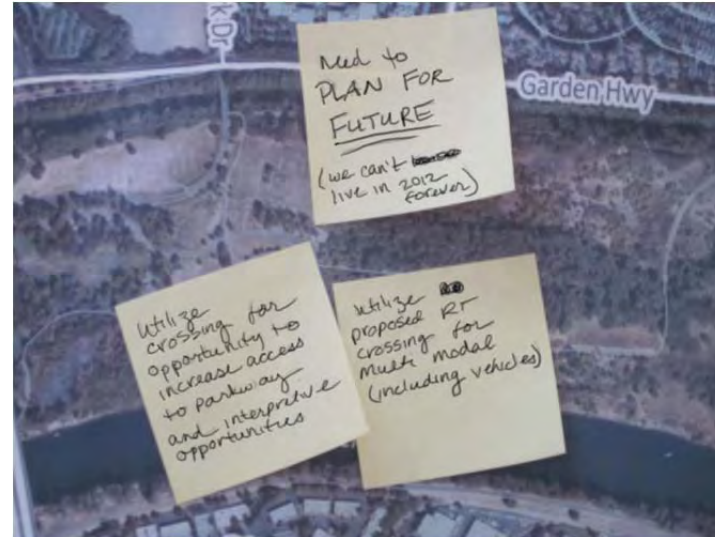 k Dr
Garden Hwy
Need to
PLAN FOR
FUTURE
(we can't
live in 2012
forever)
Utilize
crossing for
opportunity to
increase access
to parkway
and interpretive
opportunities
utilize
proposed RT
crossing for
multi modal
(including vehicles)